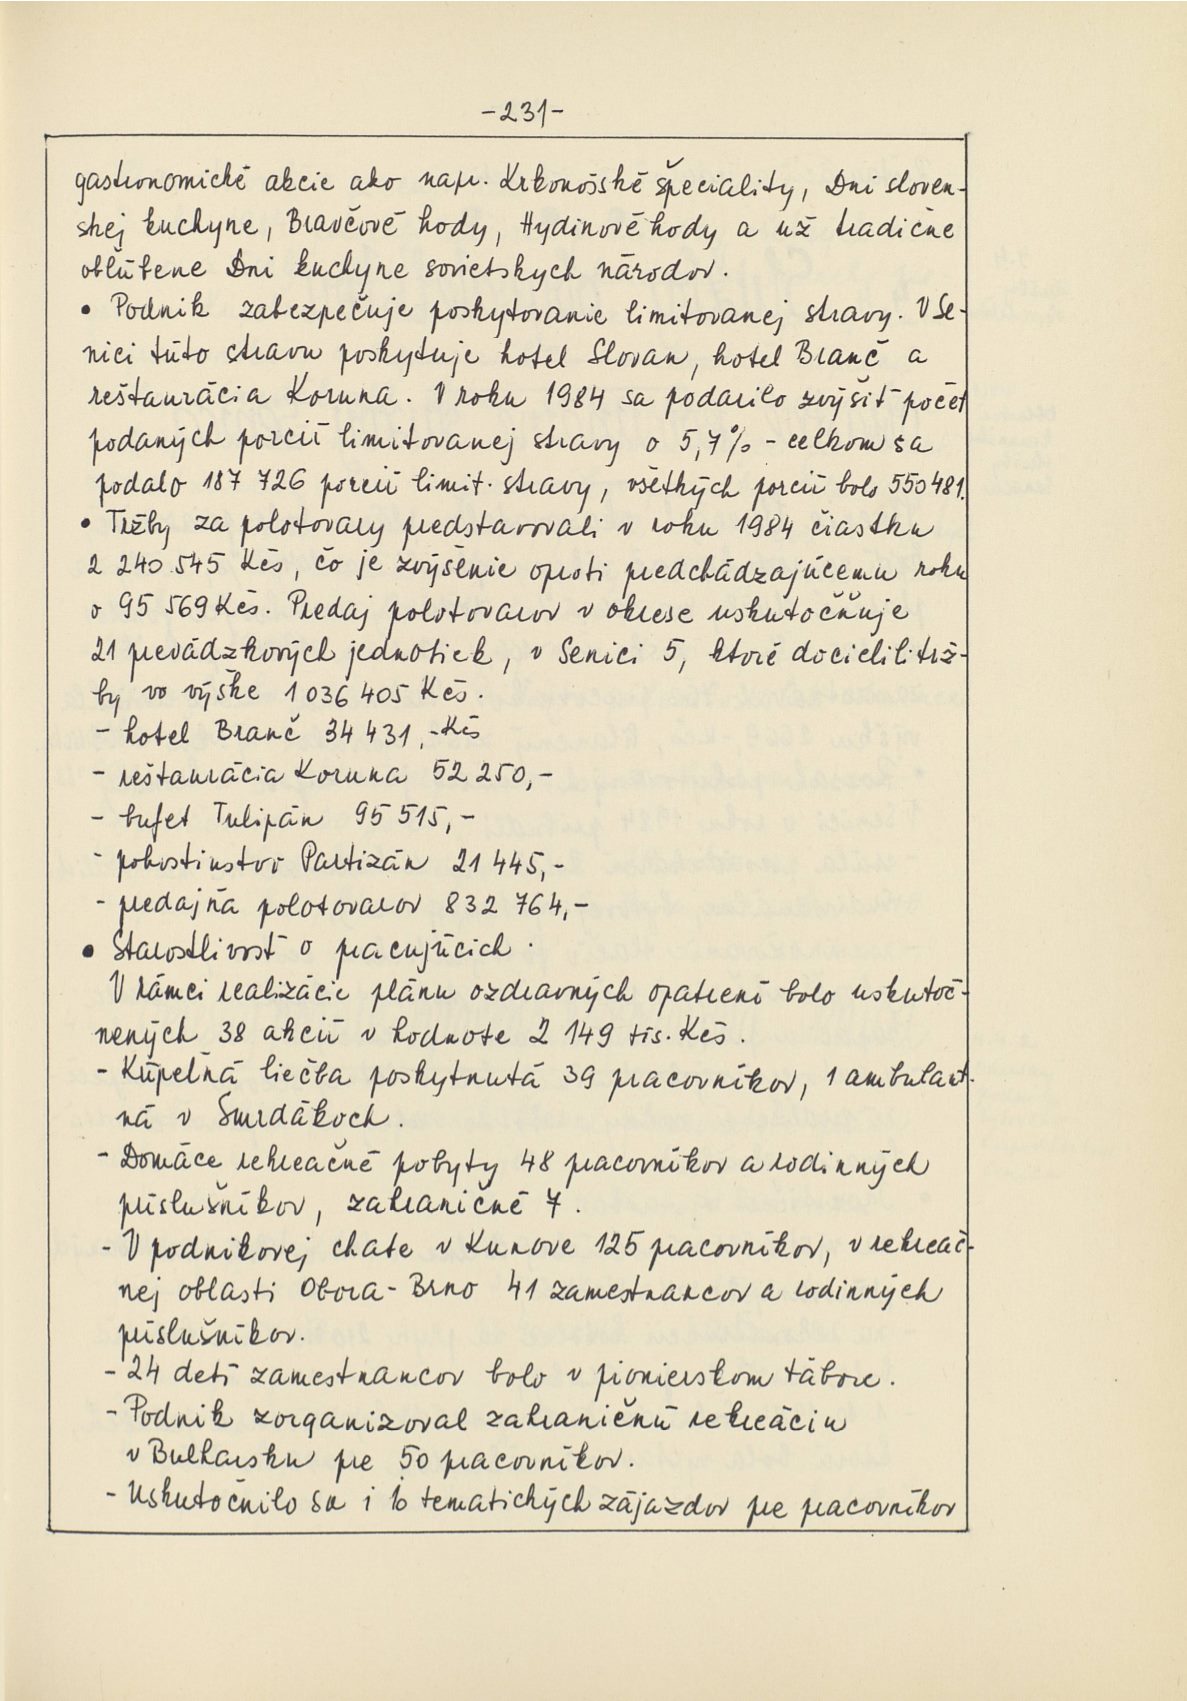 -231-
gastronomické akcie ako napr. Krkonošské špeciality, Dni sloven-
skej kuchyne, Bravčové hody, Hydinové hody a už tradične
obľúbene Dni kuchyne sovietskych národov.
• Podnik zabezpečuje poskytovanie limitovanej stravy. V Se-
nici túto stravu poskytuje hotel Slovan, hotel Branč a
reštaurácia Koruna. V roku 1984 sa podarilo zvýšiť počet
podaných porcií limitovanej stravy o 5,7% - celkom sa
podalo 187 726 porcií limit. stravy, všetkých porcií bolo 550 481.
• Tržby za polotovary predstavovali v roku 1984 čiastku
2 240 545 Kčs, čo je zvýšenie oproti predchádzajúcemu roku
o 95 569 Kčs. Predaj polotovarov v okrese uskutočňuje
21 prevádzkových jednotiek, v Senici 5, ktoré docielili trž-
by vo výške 1 036 405 Kčs.
- hotel Branč 34 431,- Kčs
- reštaurácia Koruna 52 250,-
- bufet Tulipán 95 515,-
- pohostinstvo Partizán 21 445,-
- predajňa polotovarov 832 764,-
• Starostlivosť o pracujúcich.
V rámci realizácie plánu ozdravných opatrení bolo uskutoč-
nených 38 akcií v hodnote 2 149 tis. Kčs.
- Kúpeľná liečba poskytnutá 39 pracovníkov, 1 ambulant-
ná v Smrdákoch.
- Domáce rekreačné pobyty 48 pracovníkov a rodinných
príslušníkov, zahraničné 7.
- V podnikovej chate v Kunove 125 pracovníkov, v rekreač-
nej oblasti Obora - Brno 41 zamestnancov a rodinných
príslušníkov.
- 24 detí zamestnancov bolo v pionierskom tábore.
- Podnik zorganizoval zahraničnú rekreáciu
v Bulharsku pre 50 pracovníkov.
- Uskutočnilo sa i tematických zájazdov pre pracovníkov